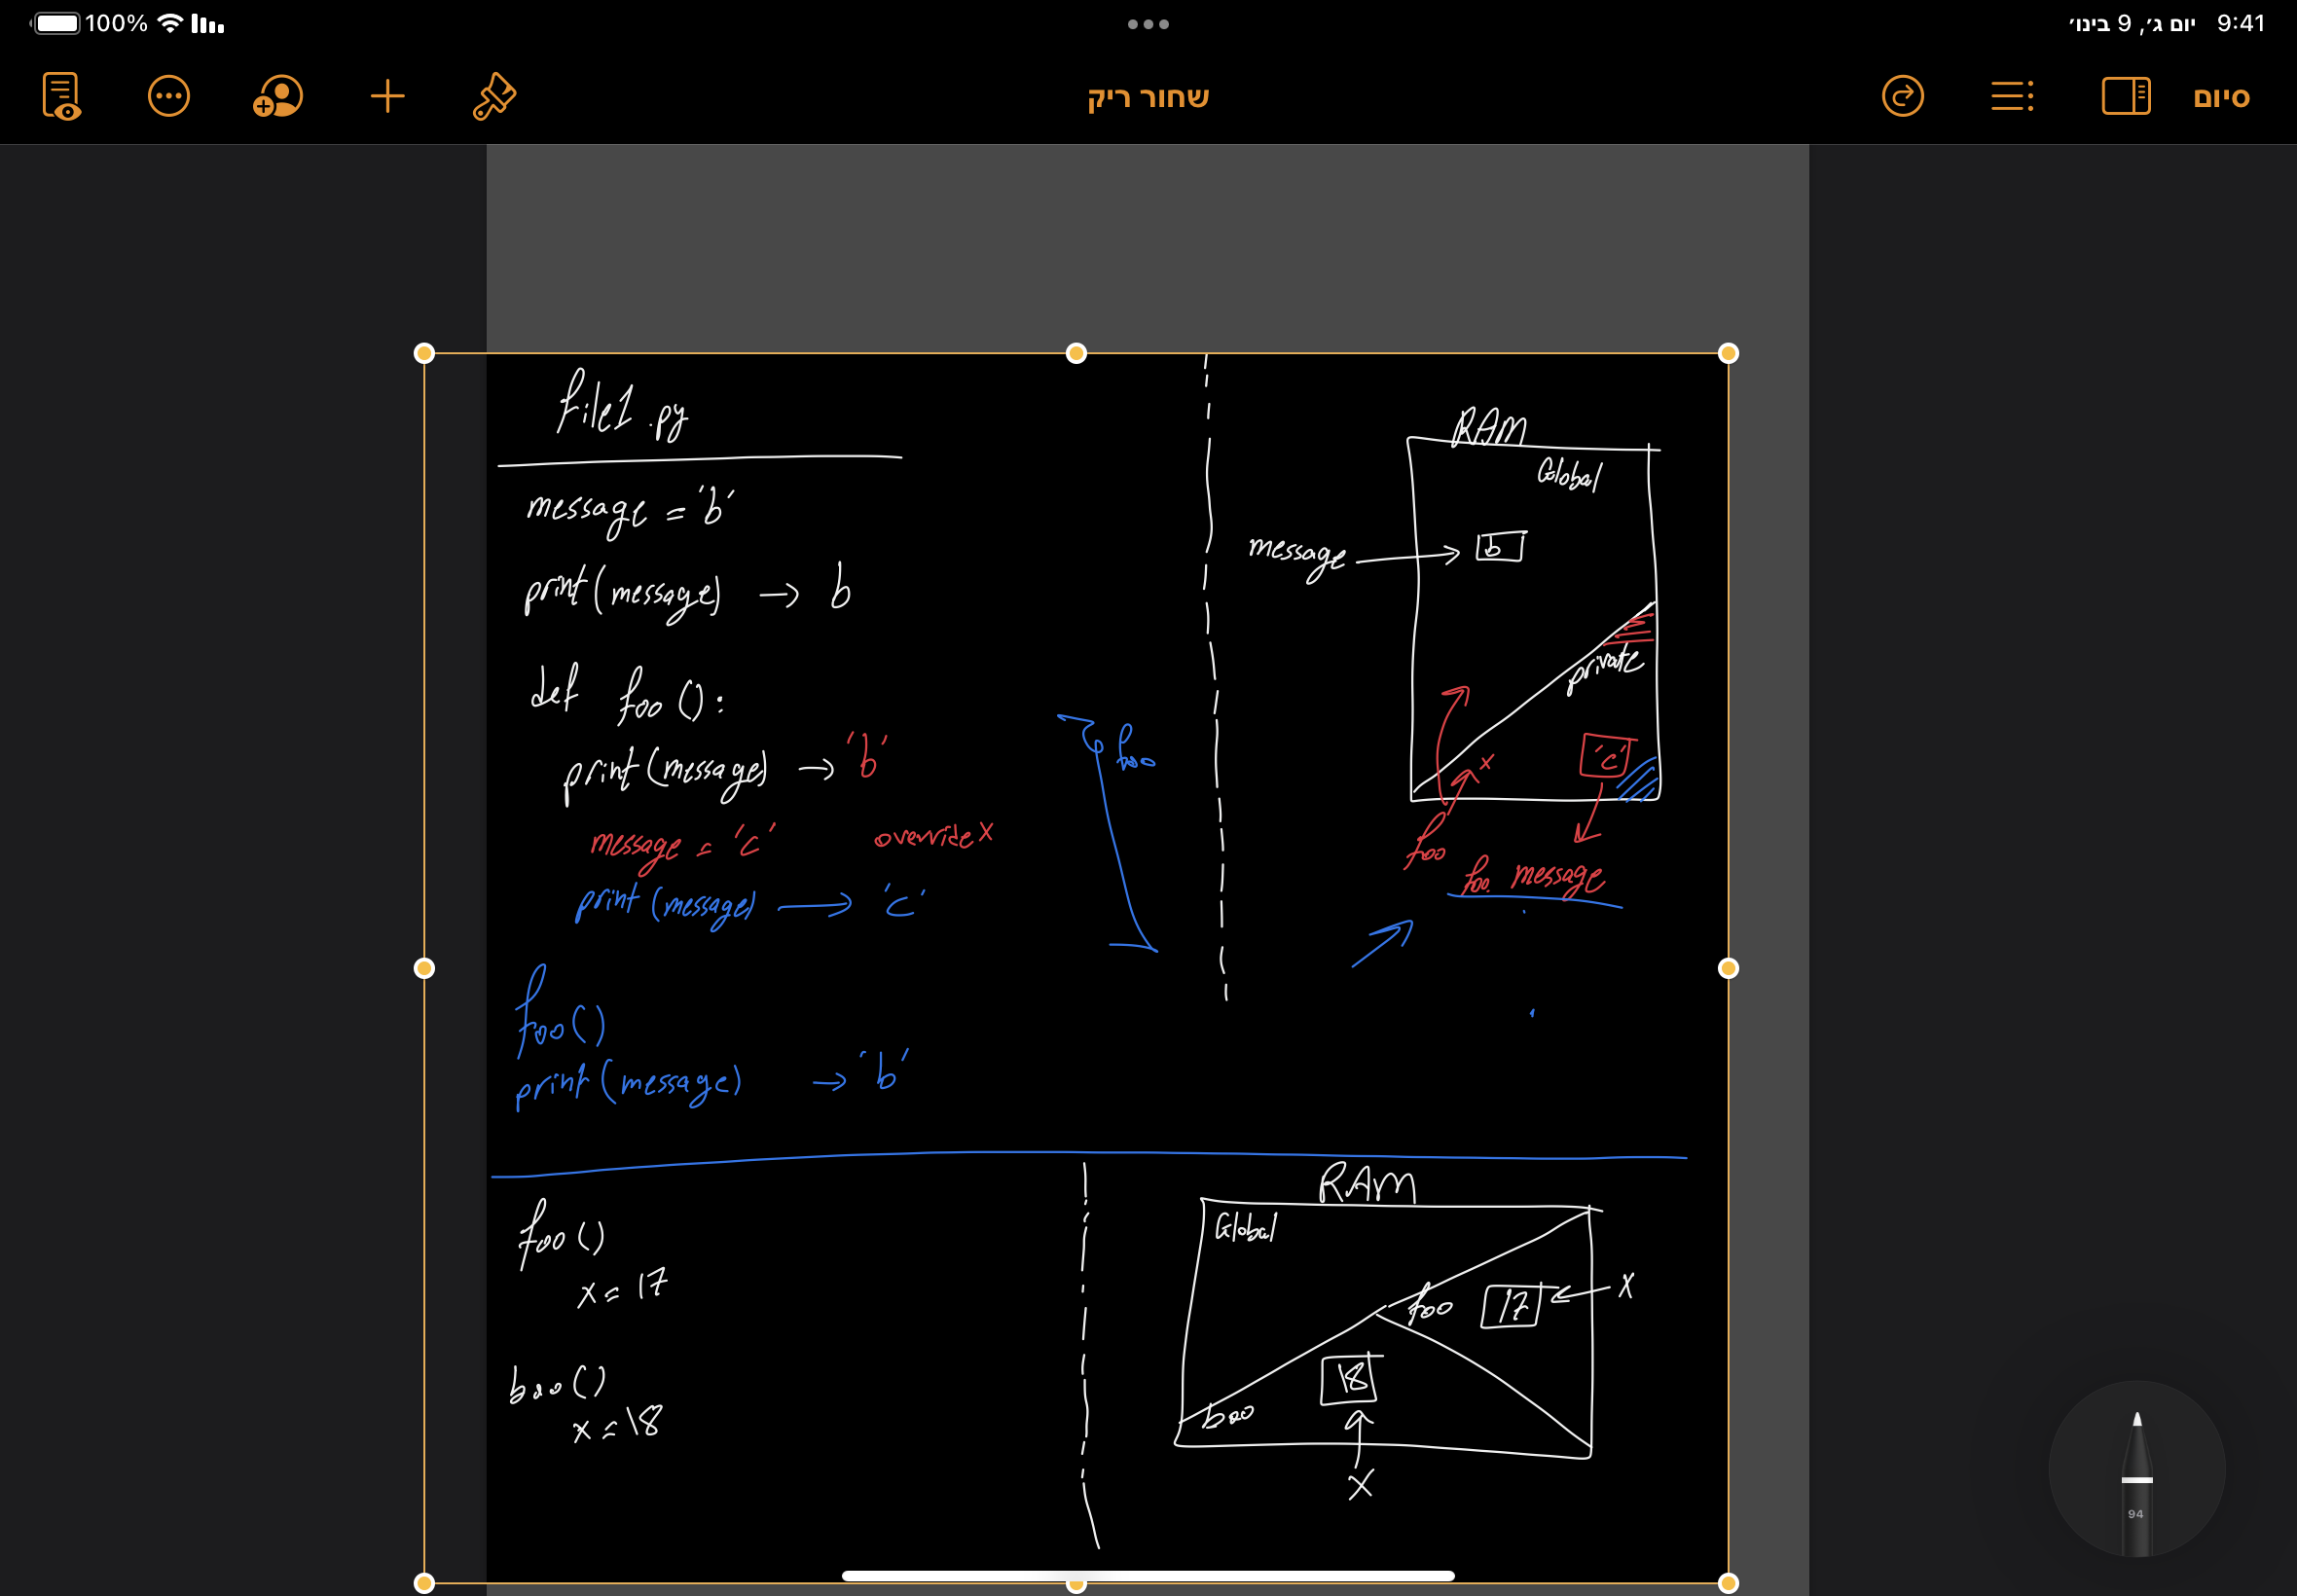 100%
9:41 יום ג׳, 9 בינו׳
שחור ריק
סיום
file1.py
message = 'b'
print(message) → b
def foo():
print(message) → 'b'
message = 'c' override X
print(message) → 'c'
foo
foo()
print(message) → 'b'
RAM
Global
message → b
private
x
'c'
foo
foo. message
foo()
x = 17
boo()
x = 18
RAM
Global
foo 17 ← X
18
boo
X
94